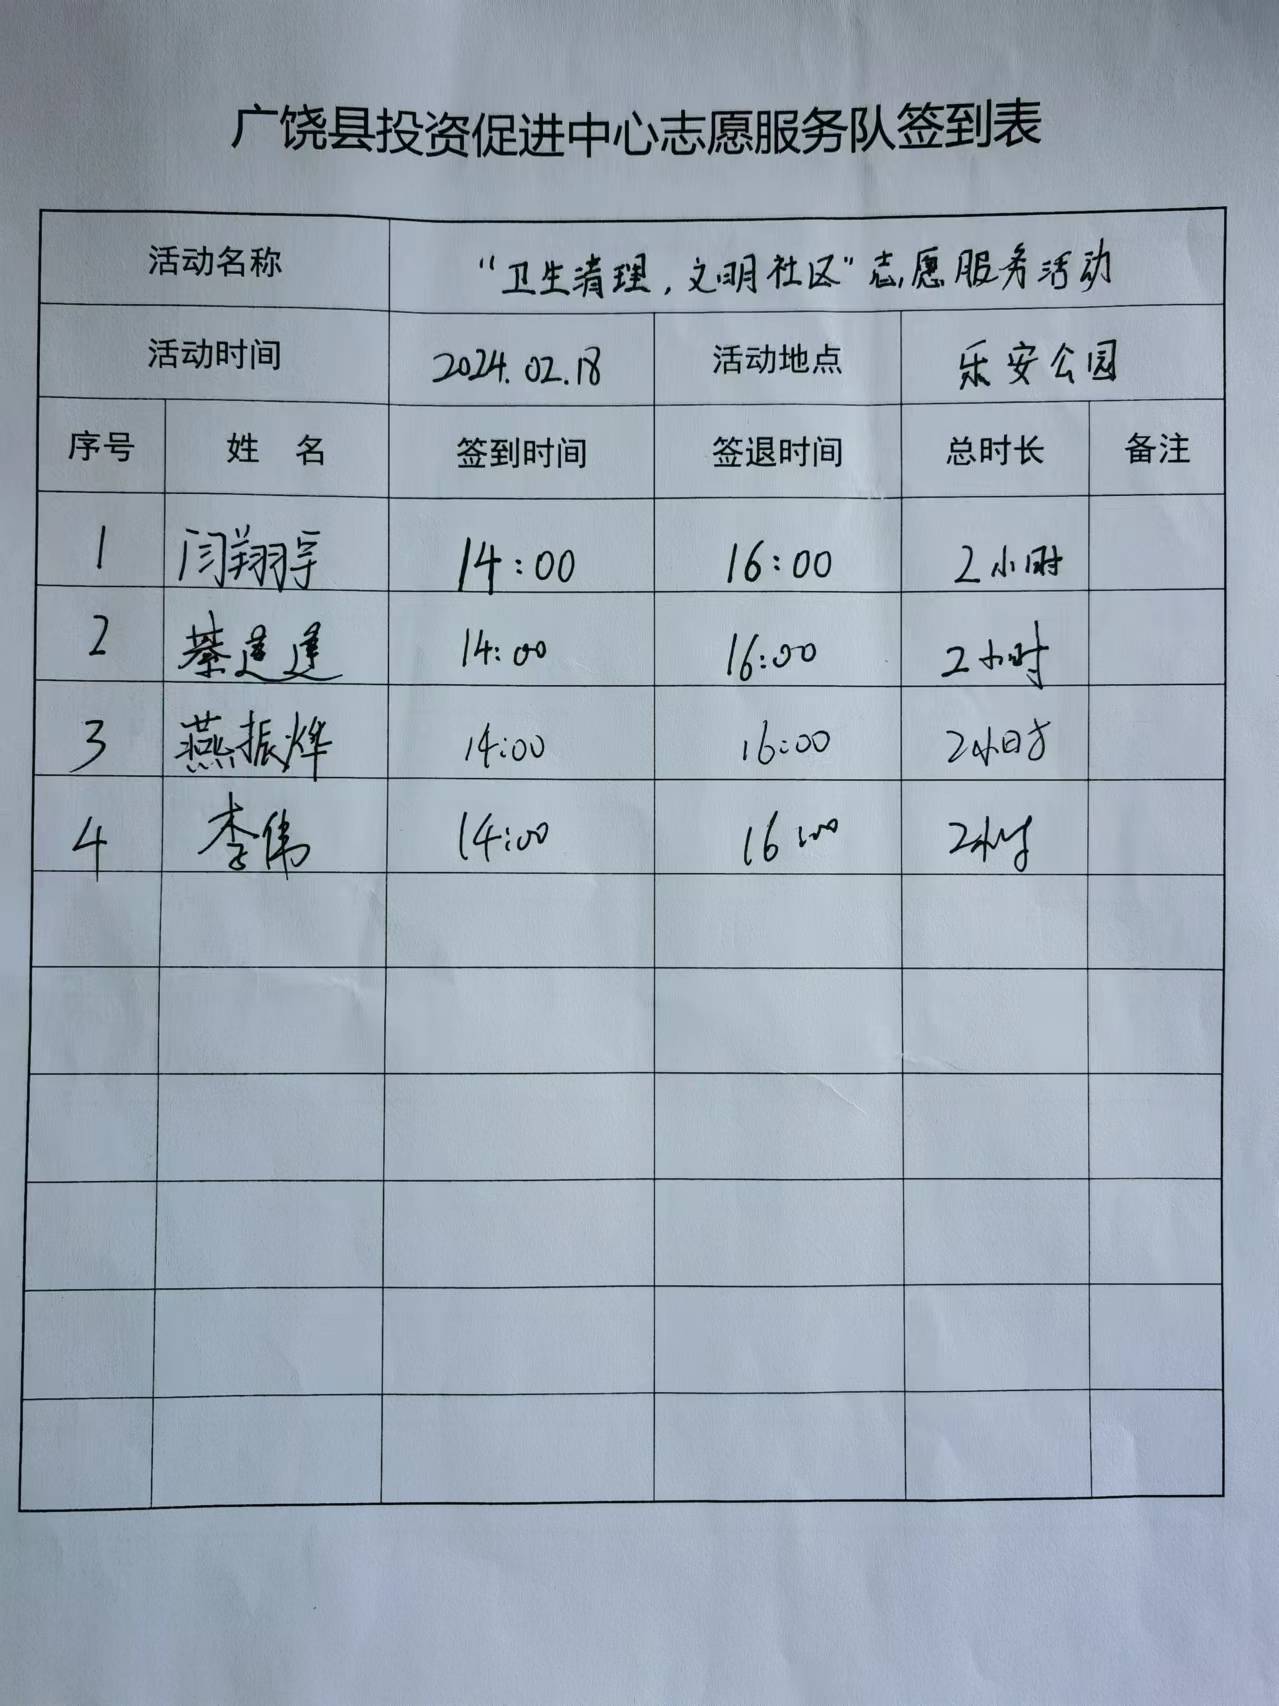 广饶县投资促进中心志愿服务队签到表
活动名称 “卫生清理，文明社区”志愿服务活动
活动时间 2024.02.18 活动地点 乐安公园
序号 姓 名 签到时间 签退时间 总时长 备注
1 闫翔宇 14:00 16:00 2小时
2 綦莲莲 14:00 16:00 2小时
3 燕振烨 14:00 16:00 2小时
4 李伟 14:00 16:00 2小时